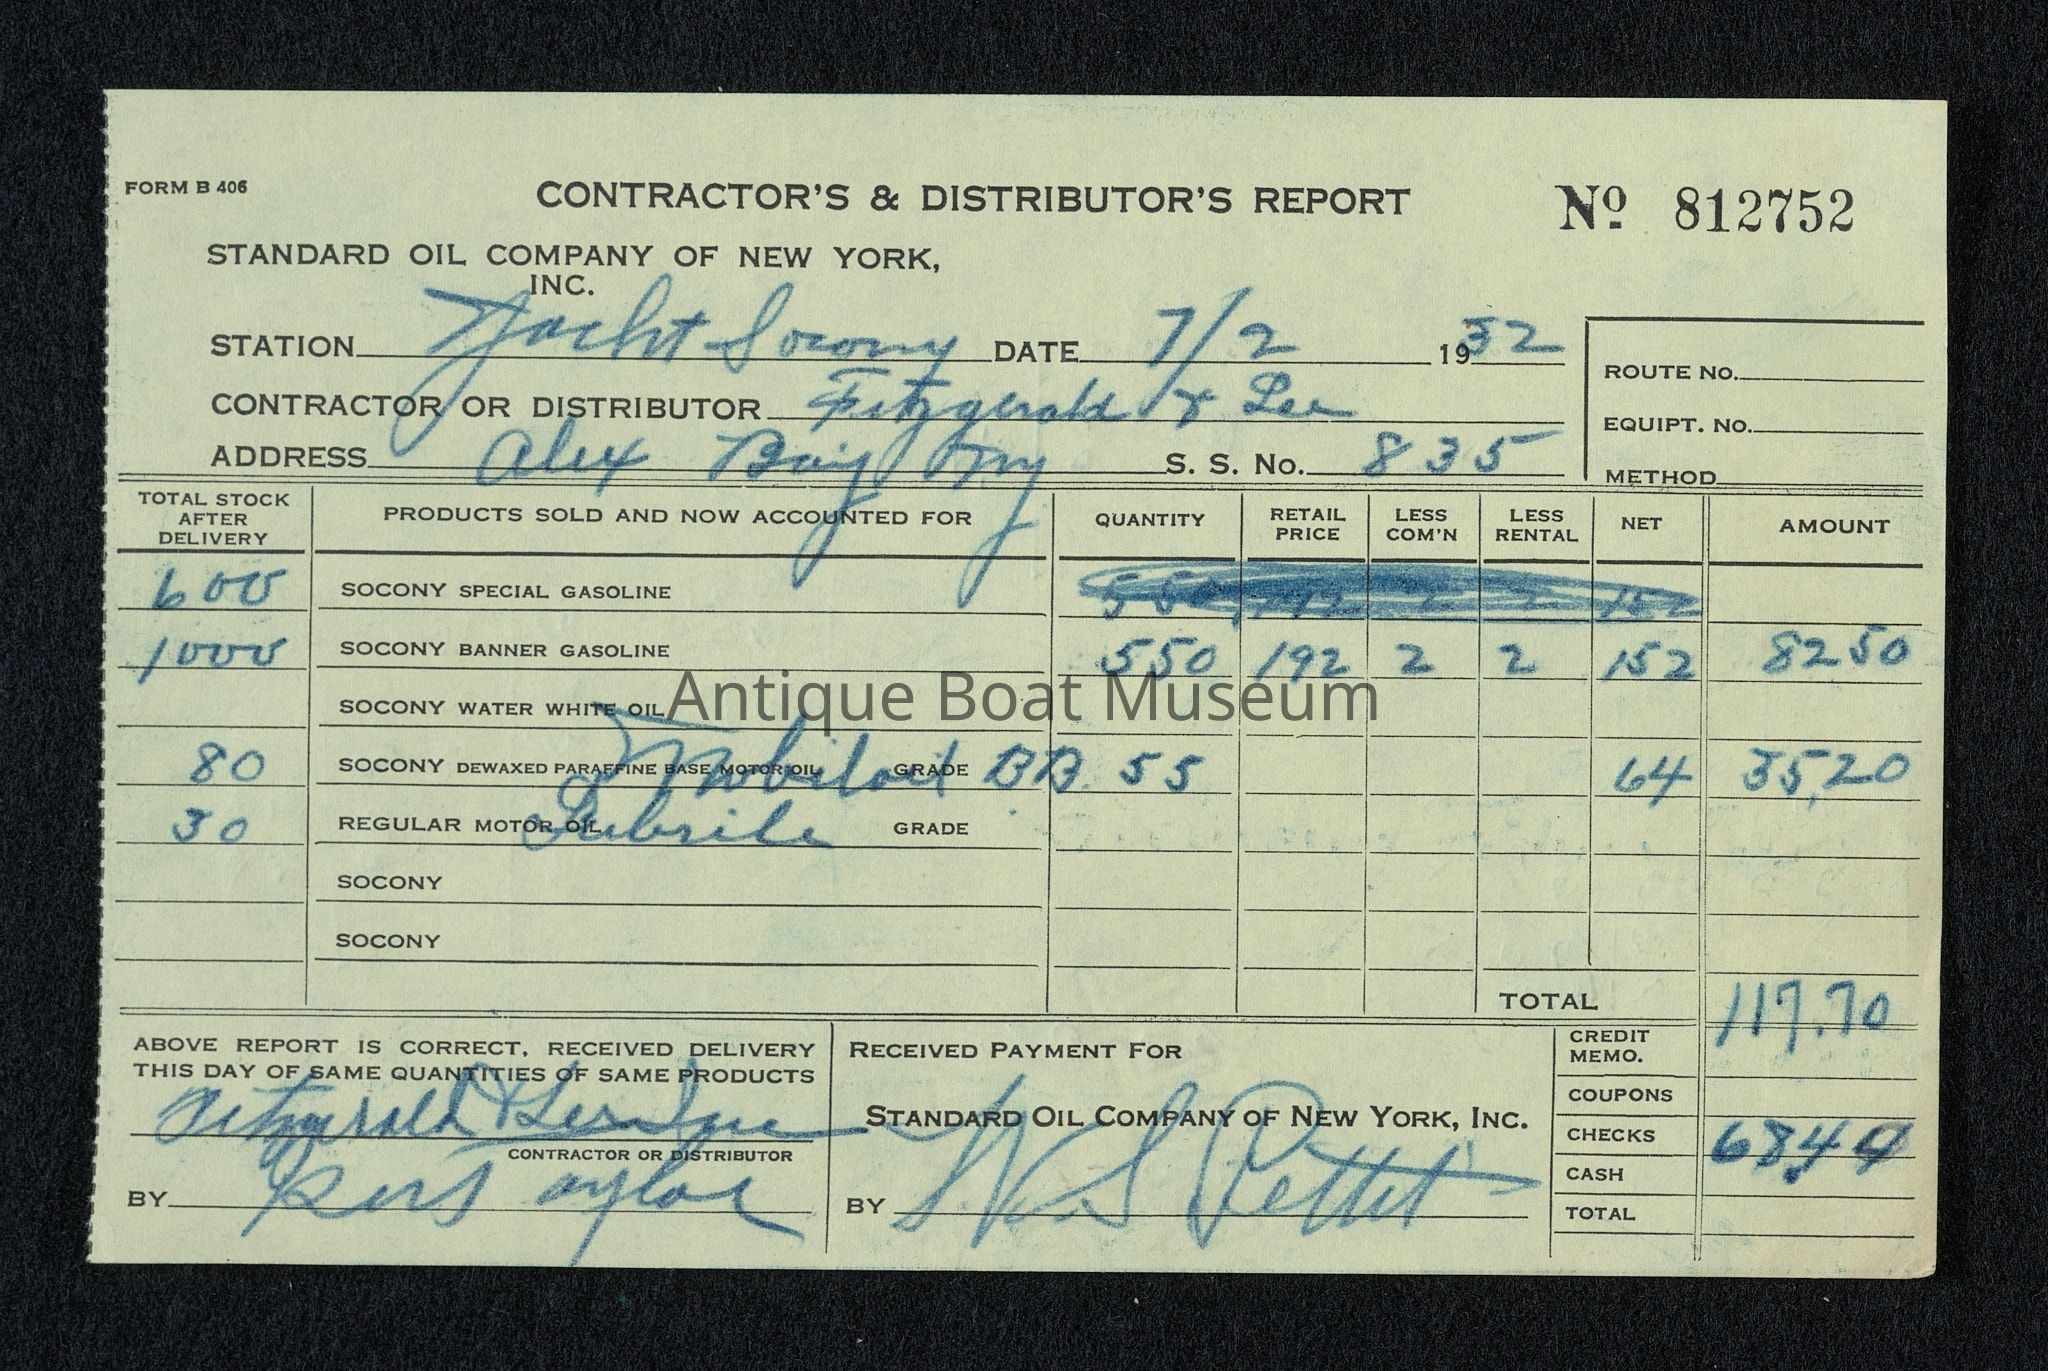 FORM B 406
CONTRACTOR'S & DISTRIBUTOR'S REPORT
Nº 812752
STANDARD OIL COMPANY OF NEW YORK,
INC.
STATION Yacht Socony DATE 7/2 1932
ROUTE NO.
CONTRACTOR OR DISTRIBUTOR Fitzgerald & Lee
EQUIPT. NO.
ADDRESS Alex Bay NY S. S. NO. 835
METHOD
TOTAL STOCK AFTER DELIVERY PRODUCTS SOLD AND NOW ACCOUNTED FOR QUANTITY RETAIL PRICE LESS COM'N LESS RENTAL NET AMOUNT
600 SOCONY SPECIAL GASOLINE 550 192 2 2 152
1000 SOCONY BANNER GASOLINE 550 192 2 2 152 82 50
SOCONY WATER WHITE OIL
Antique Boat Museum
80 SOCONY DEWAXED PARAFFINE BASE MOTOR OIL Mobiloil GRADE BB 55 64 35,20
30 REGULAR MOTOR OIL GRADE
SOCONY
SOCONY
TOTAL 117.70
ABOVE REPORT IS CORRECT, RECEIVED DELIVERY
THIS DAY OF SAME QUANTITIES OF SAME PRODUCTS
Fitzgerald & Lee Inc
CONTRACTOR OR DISTRIBUTOR
BY Taylor
RECEIVED PAYMENT FOR
STANDARD OIL COMPANY OF NEW YORK, INC.
BY Pettit
CREDIT MEMO.
COUPONS
CHECKS 6844
CASH
TOTAL